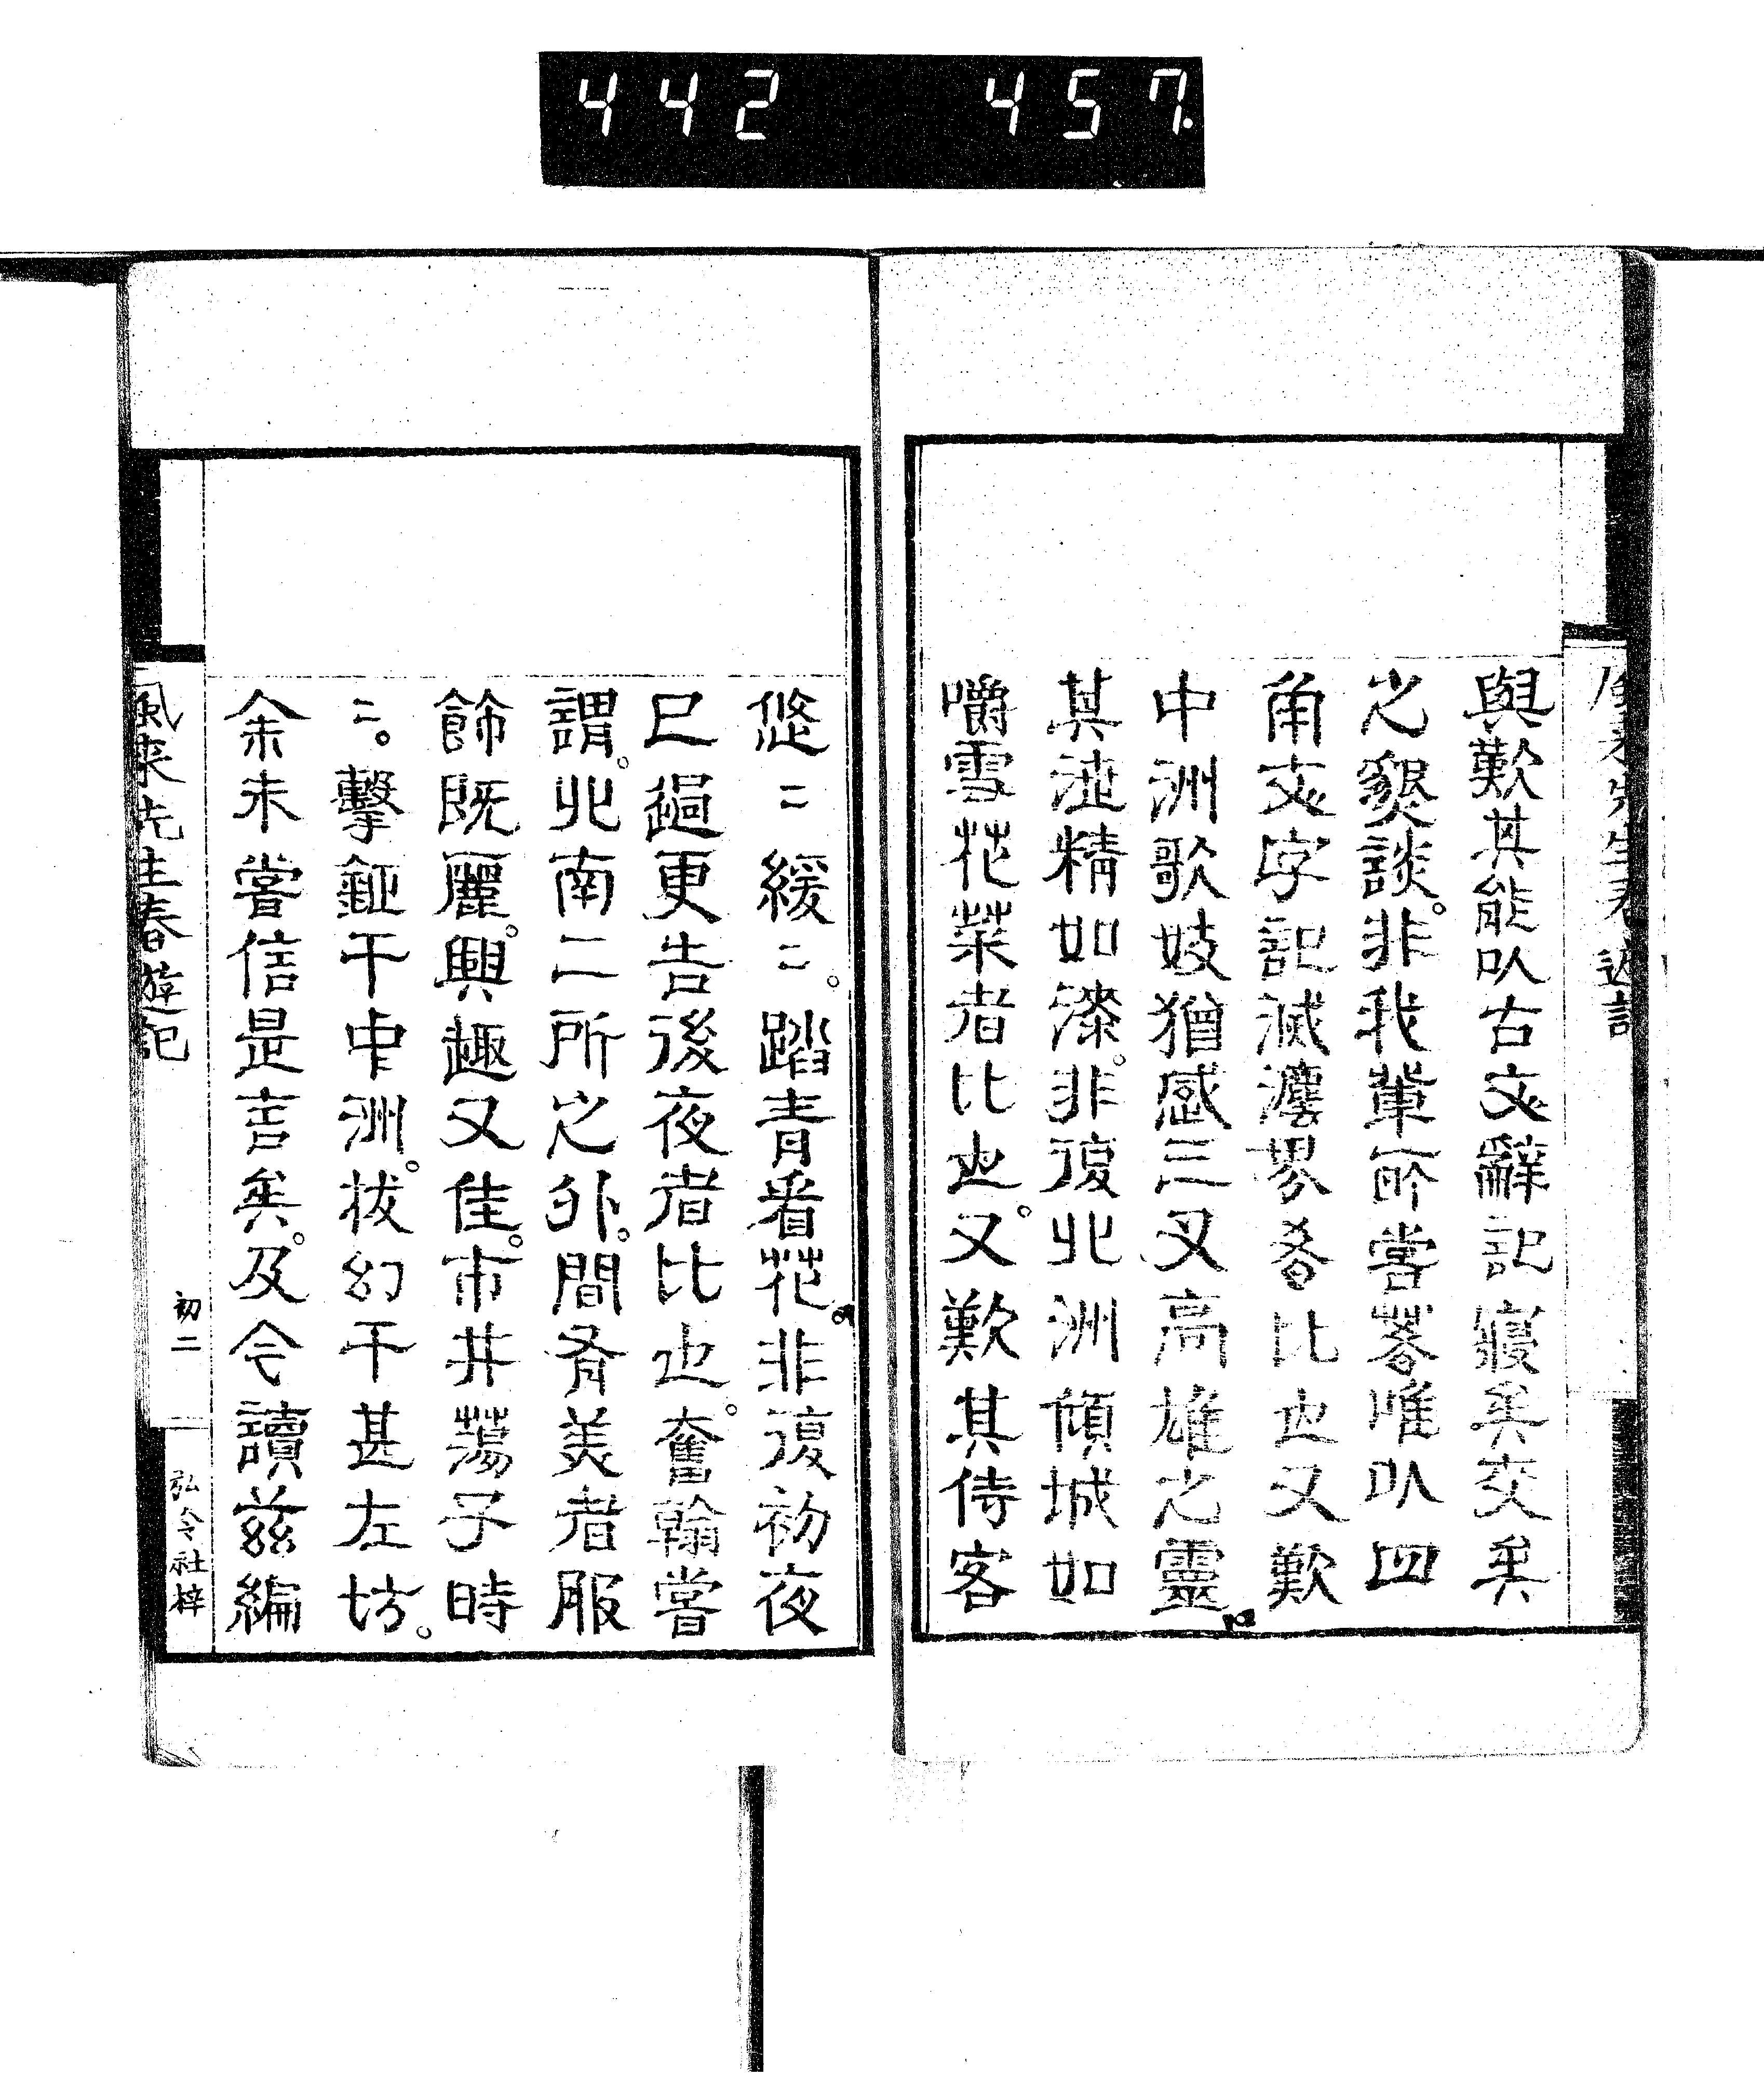 442 457.
風来先生春遊記
與歎其能以古文辭記寢矣交矣
之懇談。非我輩所嘗著唯以四
角文字記滅濹界者比也又歎
中洲歌妓猶感三叉高雄之靈。
其洼精如漆。非復北洲傾城如
嚼雪花菜者比也。又歎其侍客
悠〻緩〻。踏青看花。非復初夜
已過更告後夜者比也。奮翰嘗
謂。北南二所之外。間有美者服
飾既麗。興趣又佳。市井蕩子時
〻。擊鉦干中洲。拔幻干甚左坊。
余未嘗信是言矣。及今讀茲編
風来先生春遊記
初二
弘令社梓